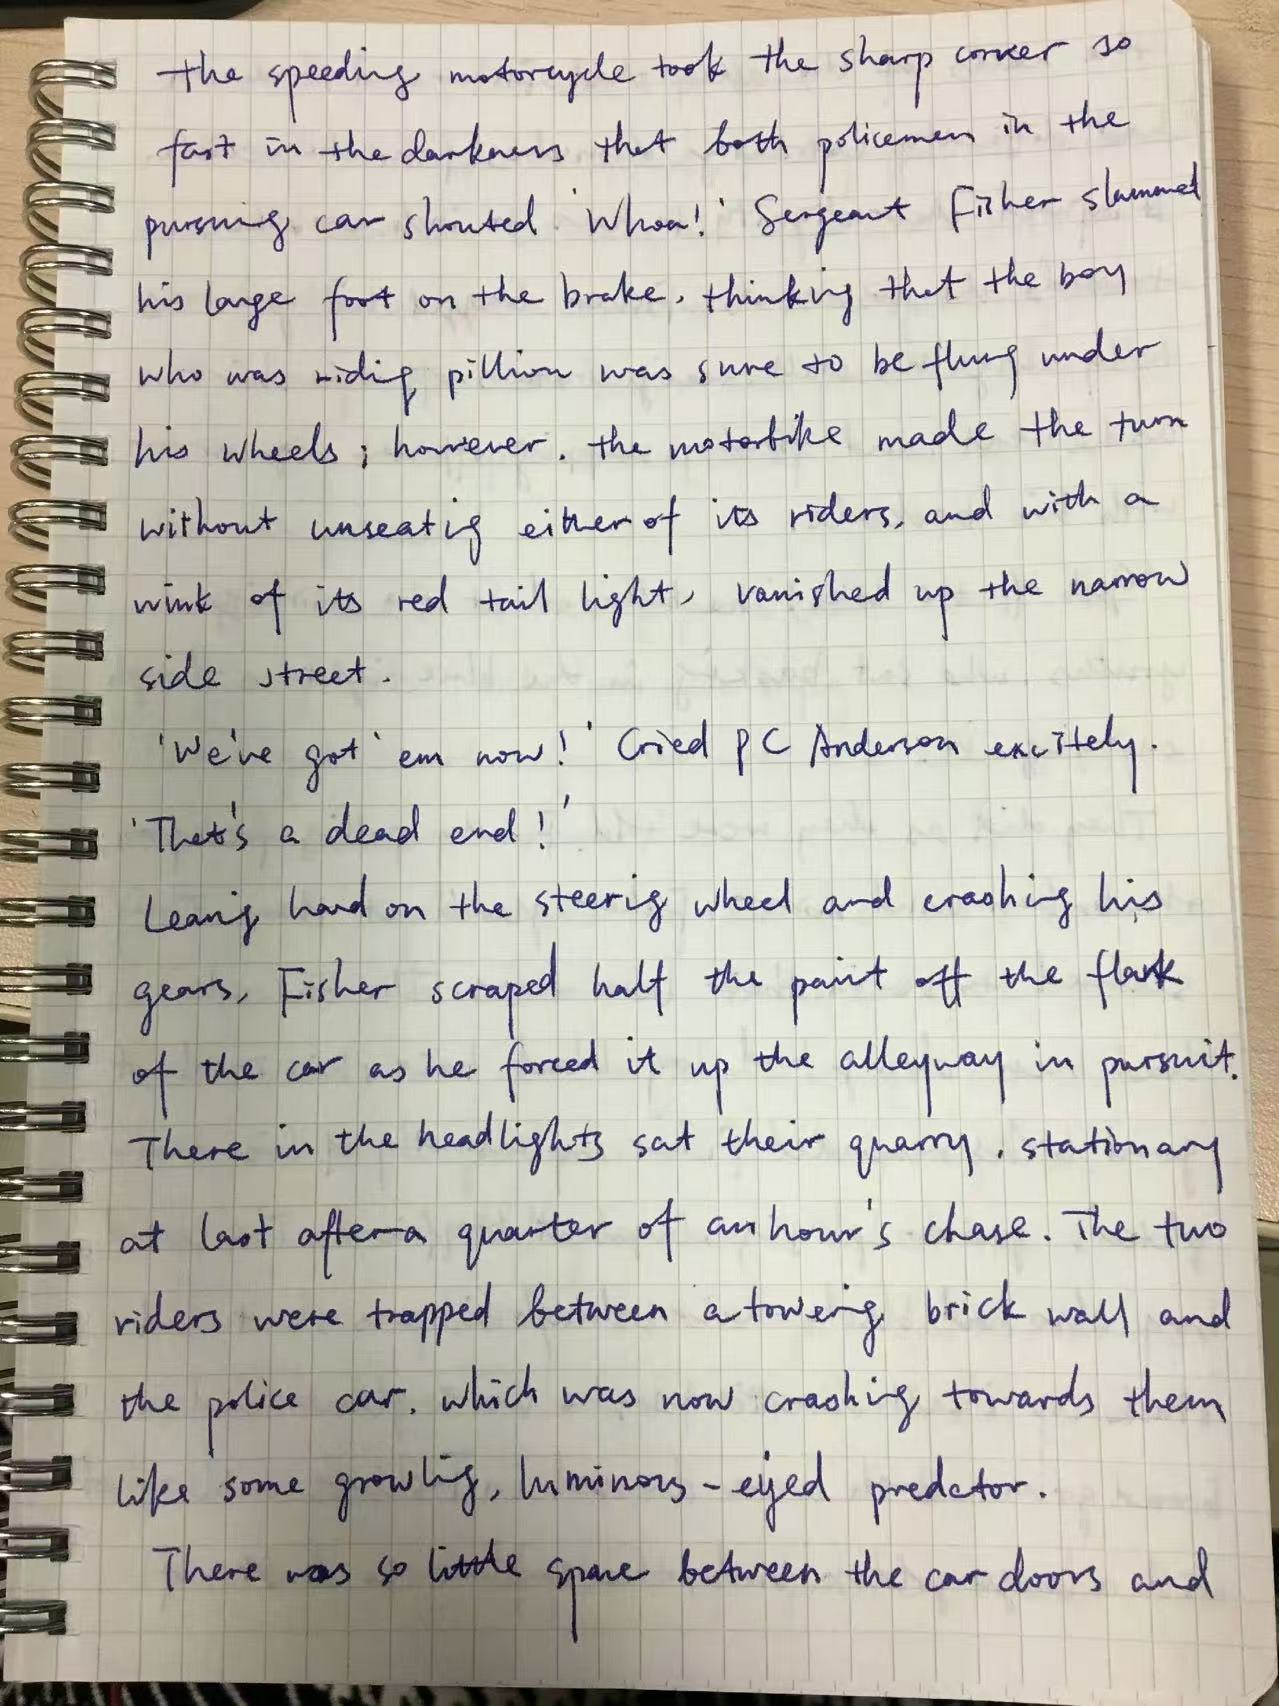 The speeding motorcycle took the sharp corner so
fast in the darkness that both policemen in the
pursuing car shouted 'Whoa!' Sergeant Fisher slammed
his large foot on the brake, thinking that the boy
who was riding pillion was sure to be flung under
his wheels; however, the motorbike made the turn
without unseating either of its riders, and with a
wink of its red tail light, vanished up the narrow
side street.
'We've got 'em now!' Cried PC Anderson excitely.
'That's a dead end!'
Leaning hard on the steering wheel and crashing his
gears, Fisher scraped half the paint off the flank
of the car as he forced it up the alleyway in pursuit.
There in the headlights sat their quarry, stationary
at last after a quarter of an hour's chase. The two
riders were trapped between a towering brick wall and
the police car, which was now crashing towards them
like some growling, luminous-eyed predator.
There was so little space between the car doors and